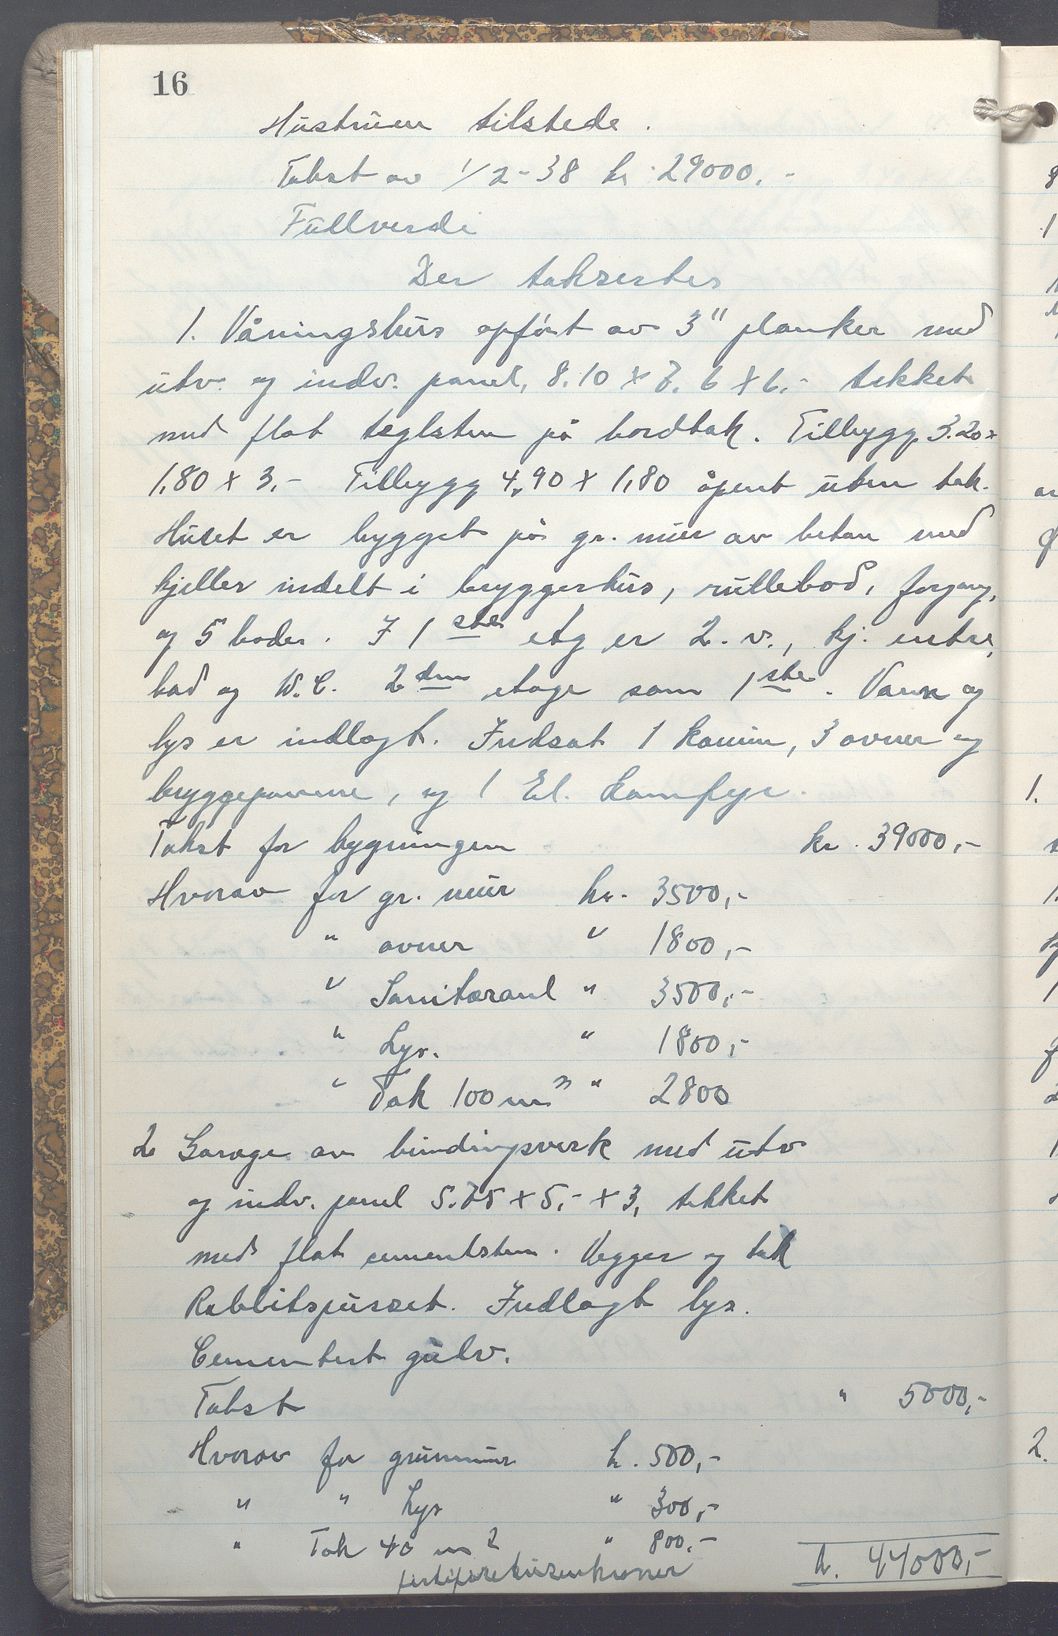 16
Hustruen tilstede.
Takst av 1/2-38 kr. 29000.-
Fullverdi
Der taksertes
1. Våningshus opført av 3" planker med
utv. og indv. panel, 8.10 x 7.6 x 6,- tekket
med flat teglsten på bordtak. Tilbygg 3.20 x
1,80 x 3,- Tilbygg 4,90 x 1,80 åpent uten tak.
Huset er bygget på gr. mur av beton med
kjeller indelt i bryggerhus, rullebod, forgang,
og 5 boder. I 1ste etg er 2. v., kj. entre,
bad og W.C. 2den etage som 1ste. Vann og
lys er indlagt. Indsat 1 kamin, 3 ovner og
bryggepanne, og 1 El. komfyr.
Takst for bygningen kr. 39000,-
Hvorav for gr. mur kr. 3500,-
" ovner " 1800,-
" Sanitæranl " 3500,-
" Lys. " 1800,-
" Tak 100 m² " 2800
2 Garage av bindingsverk med utv
og indv. panel 5.75 x 5,- x 3, tekket
med flat cementsten. Vegger og tak
Rabbitspusset. Indlagt lys.
Cementert gulv.
Takst " 5000,-
Hvorav for grunmur kr. 500,-
" " Lys " 300,-
" Tak 40 m² " 800.-
førtifiretusenkroner kr. 44000,-